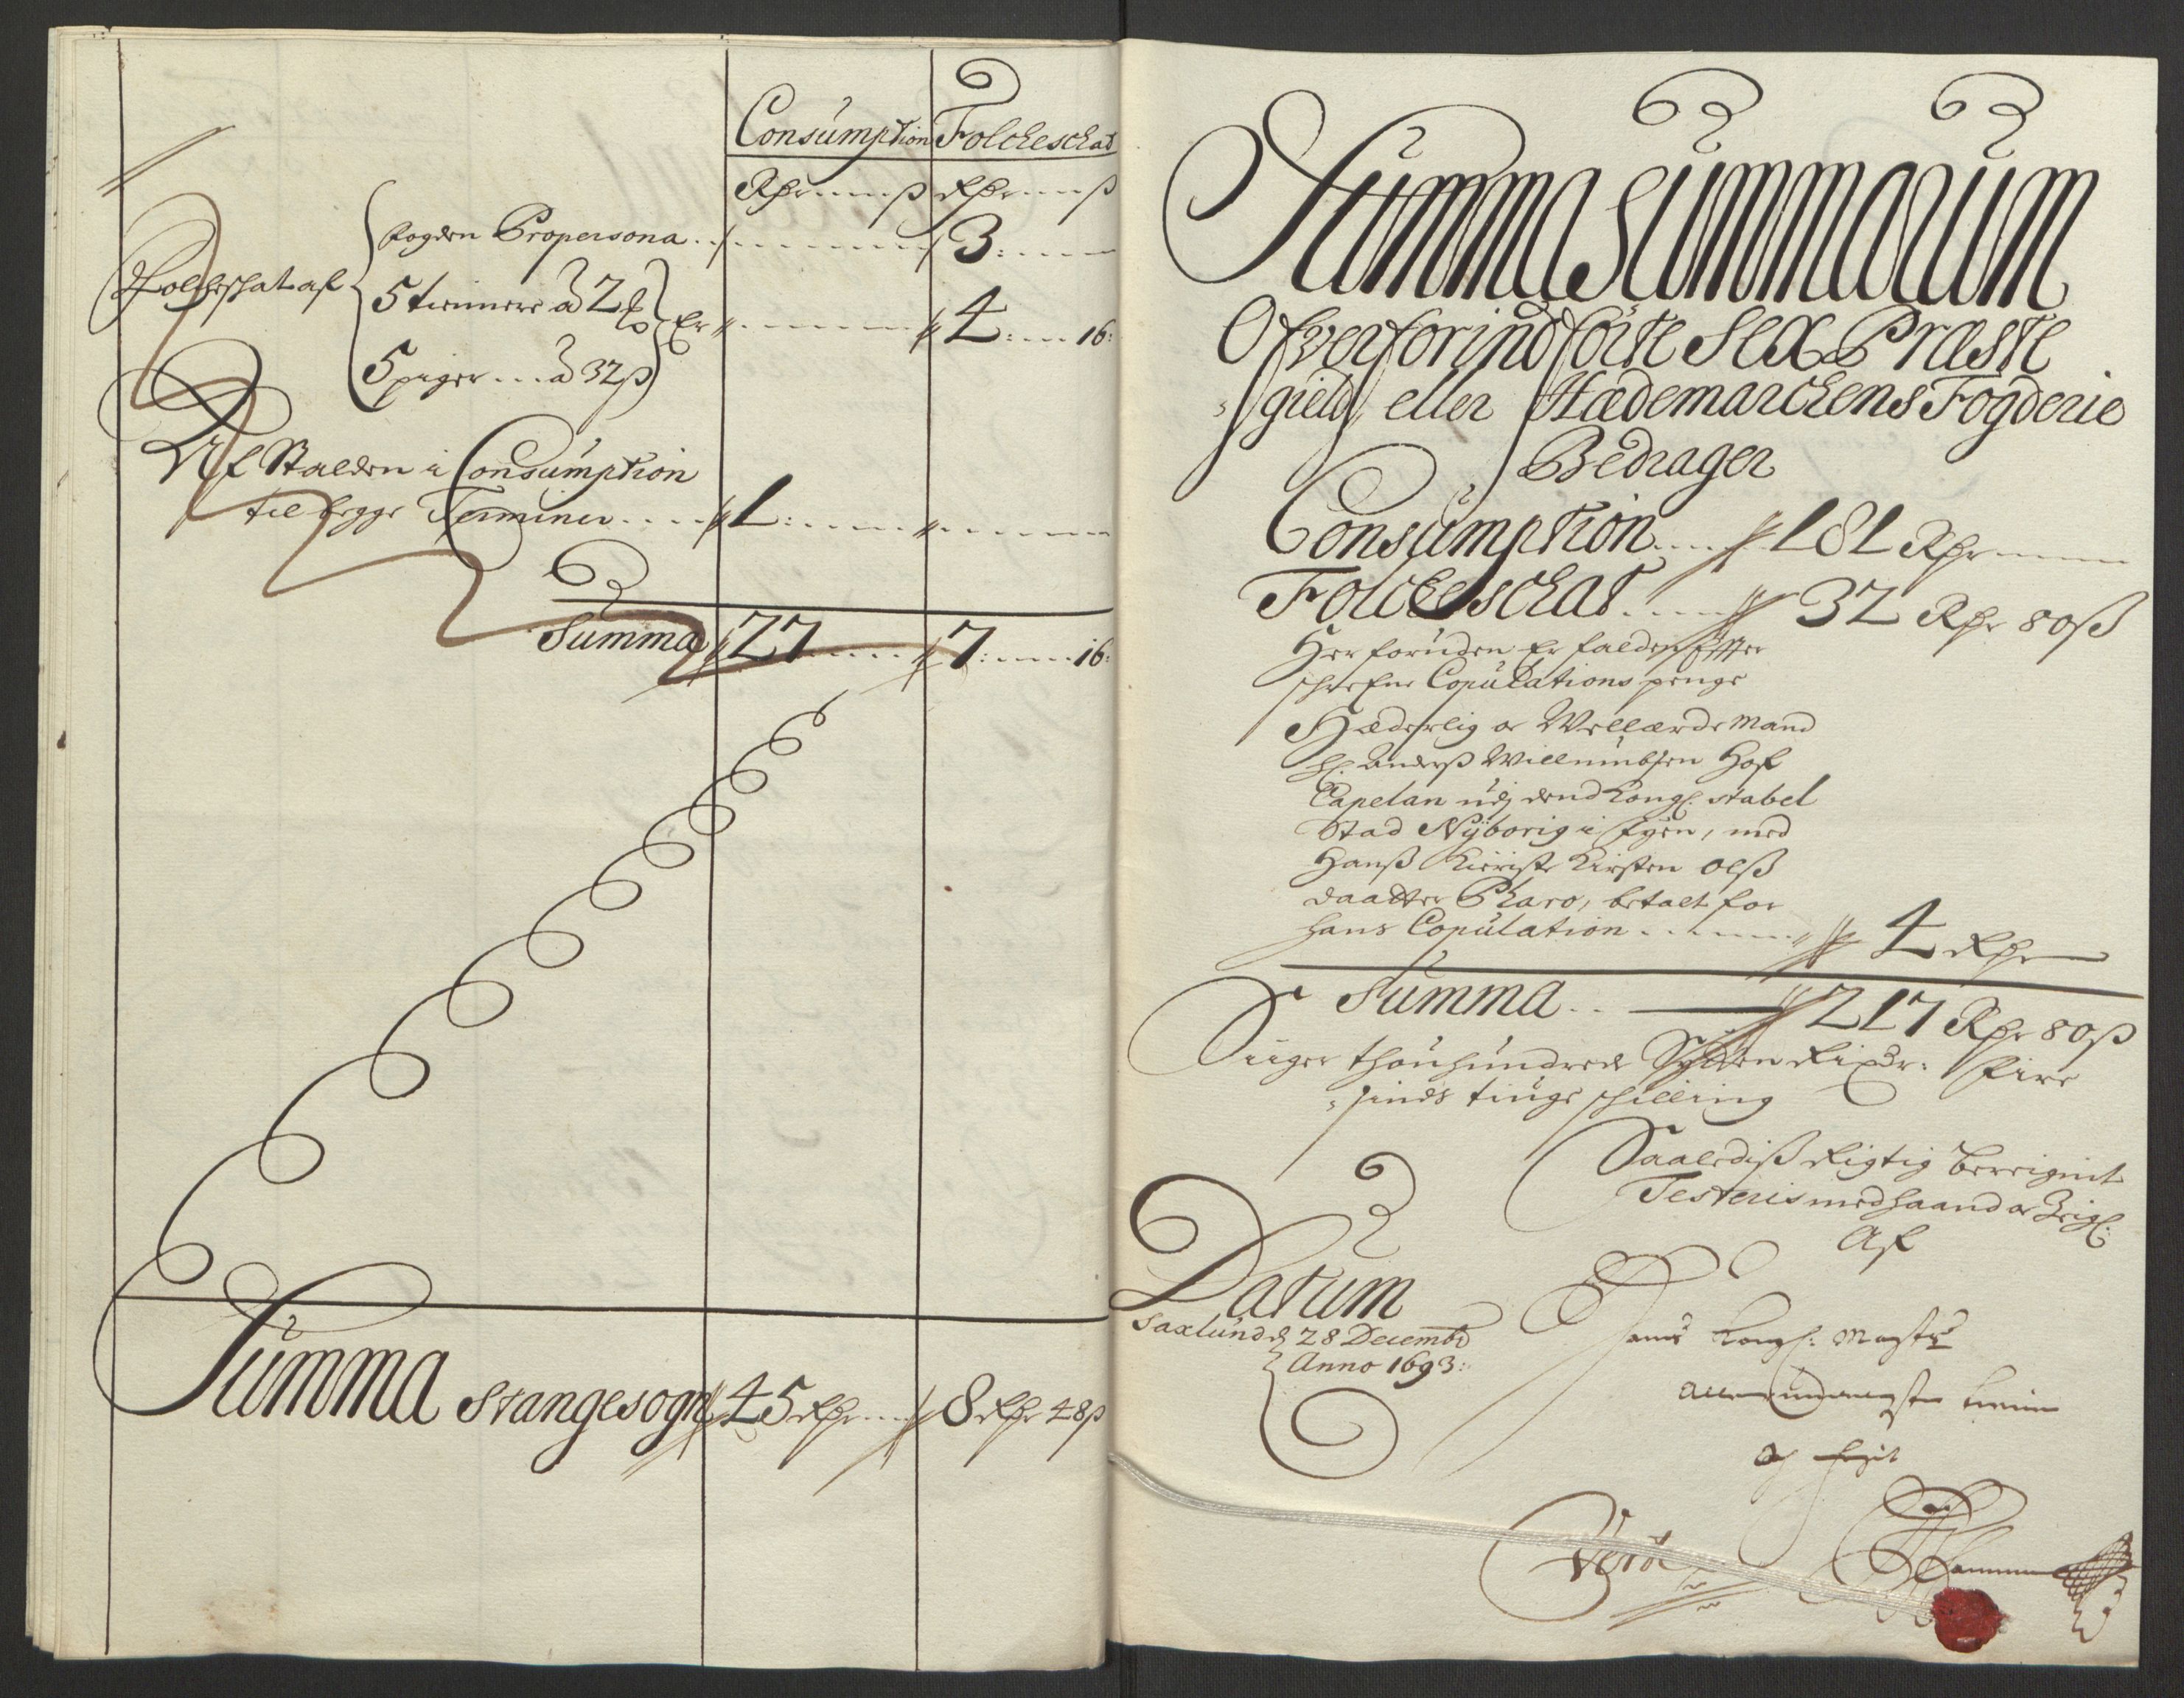 Consumption Folckeschat
Rhr ß Rhr ß
fogden Propersona 3:
Folckeschat af
5 tienner a 2
Er 4: 16:
5 piger a 32 ß
Af Stalden i Consumption
til begge Terminer 1:
Summa 27 7: 16:
Summa Stangesogn 45 Rhr 8 Rhr 48 ß
Summa Summarum
Ofverforindførte Sex Præste
gield, eller Hædemarckens Fogderie
Bedrager
Consumption 181 Rhr
Folckeschat 32 Rhr 80 ß
Her foruden Er falden Efter
schrefne Copulations penge
Hæderlig og Wellærde Mand
Hr. Anderß Willumbsen Hof
Capelan udj dend Kongl: Stabel
Stad Nÿborig i fyen, med
Hanß Kieriste Kirsten Olß
daatter Pharo, betalt for
hans Copulation 4 Rhr
Summa 217 Rhr 80 ß
Siiger thouhundrede Sytten Rixdr: Fire
sinds tiuge schilling
Saalediß Rigtig Bereignit
Testeris med haand og Zeigl:
Af
Datum
Saxlund d 28 Decembr
Anno 1693:
Hans Kongl: Maysts
Allerunderdanigste tienner